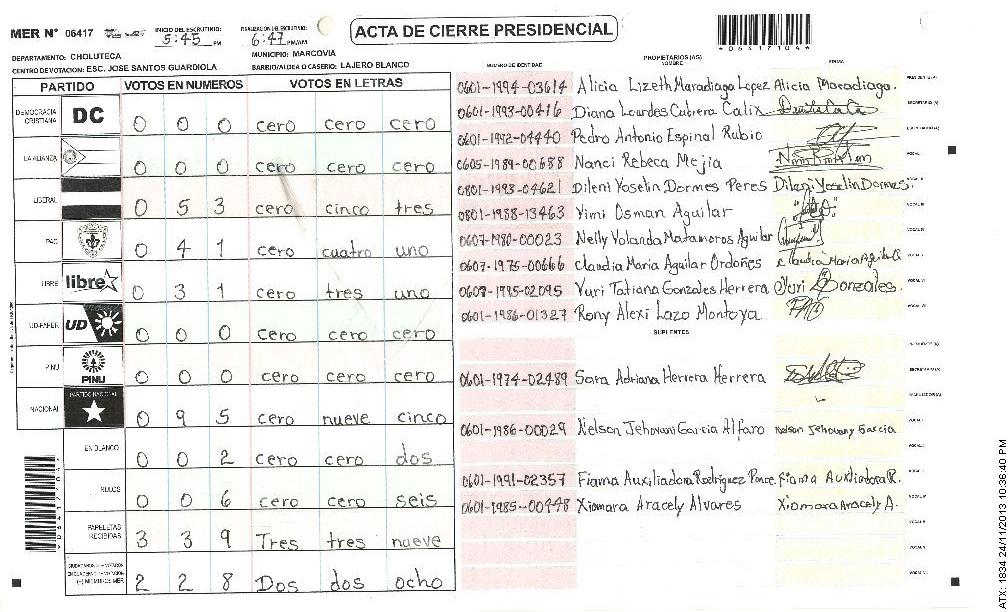 MER N° 06417
INICIO DEL ESCRUTINIO: 5:45 PM
FINALIZACION DEL ESCRUTINIO: 6:47 PM/AM
ACTA DE CIERRE PRESIDENCIAL
*06417104*
DEPARTAMENTO: CHOLUTECA
MUNICIPIO: MARCOVIA
CENTRO DE VOTACION: ESC. JOSE SANTOS GUARDIOLA
BARRIO/ALDEA O CASERIO: LAJERO BLANCO
PARTIDO VOTOS EN NUMEROS VOTOS EN LETRAS
DEMOCRACIA CRISTIANA DC 0 0 0 cero cero cero
LA ALIANZA 0 0 0 cero cero cero
LIBERAL 0 5 3 cero cinco tres
PAC 0 4 1 cero cuatro uno
LIBRE libre 0 3 1 cero tres uno
UD-FAPER UD 0 0 0 cero cero cero
PINU PINU 0 0 0 cero cero cero
NACIONAL PARTIDO NACIONAL 0 9 5 cero nueve cinco
EN BLANCO 0 0 2 cero cero dos
NULOS 0 0 6 cero cero seis
PAPELETAS RECIBIDAS 3 3 9 Tres tres nueve
2 2 8 Dos dos ocho
NUMERO DE IDENTIDAD PROPIETARIOS (AS) NOMBRE FIRMA
0601-1994-03614 Alicia Lizeth Maradiaga Lopez Alicia Maradiaga.
0601-1993-00416 Diana Lourdes Cabrera Calix
0601-1992-04440 Pedro Antonio Espinal Rubio
0605-1989-00688 Nanci Rebeca Mejia
0801-1993-04621 Dileni Yoselin Dormes Peres Dileni Yoselin Dormes.
0801-1988-13463 Yimi Osman Aguilar
0607-1980-00023 Nelly Yolanda Matamoros Aguilar
0607-1975-00666 Claudia Maria Aguilar Ordoñes Claudia Maria Aguilar O
0608-1995-02095 Yuri Tatiana Gonzales Herrera Yuri Gonzales.
0601-1986-01327 Rony Alexi Lazo Montoya
SUPLENTES
0601-1974-02489 Sara Adriana Herrera Herrera
0601-1986-00029 Nelson Jehovani Garcia Alfaro Nelson Jehovany Garcia
0601-1991-02357 Fiama Auxiliadora Rodriguez Ponce. Fiama Auxiliadora R.
0601-1985-00448 Xiomara Aracely Alvares Xiomara Aracely A.
ATX: 1834 24/11/2013 10:36:40 PM